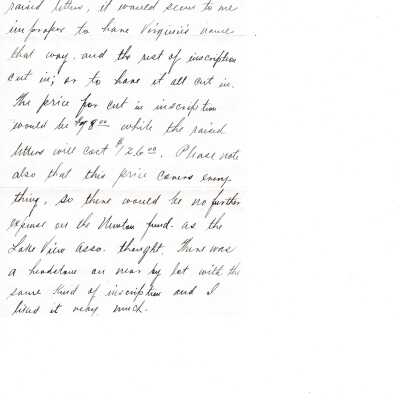 raised letters, it would seem to me
improper to have Virginia's name
that way, and the rest of inscription
cut in; or to have it all cut in.
The price for cut in inscription
would be $98.00 while the raised
letters will cost $126.00. Please note
also that this price covers every
thing, so there would be no further
expense on the Newton fund. as the
Lake View Asso. thought. There was
a headstone on near by lot with the
same kind of inscription and I
liked it very much.